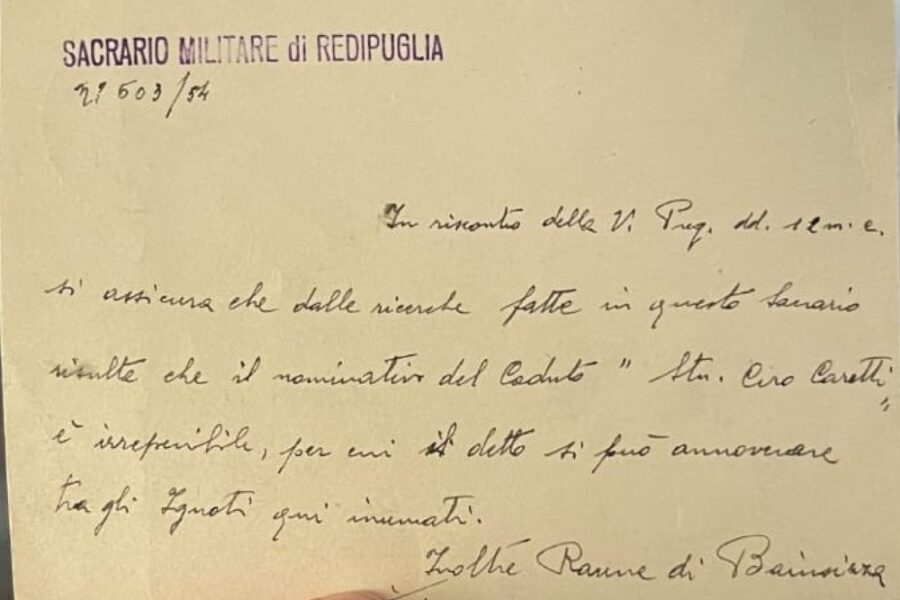 SACRARIO MILITARE di REDIPUGLIA
N° 603/54
In riscontro della V. Preg. dd. 12 m. c.
si assicura che dalle ricerche fatte in questo Sacrario
risulta che il nominativo del Caduto " Stn. Ciro Caretti "
è irreperibile, per cui il detto si può annoverare
tra gli Ignoti qui inumati.
Inoltre di Bainsizza